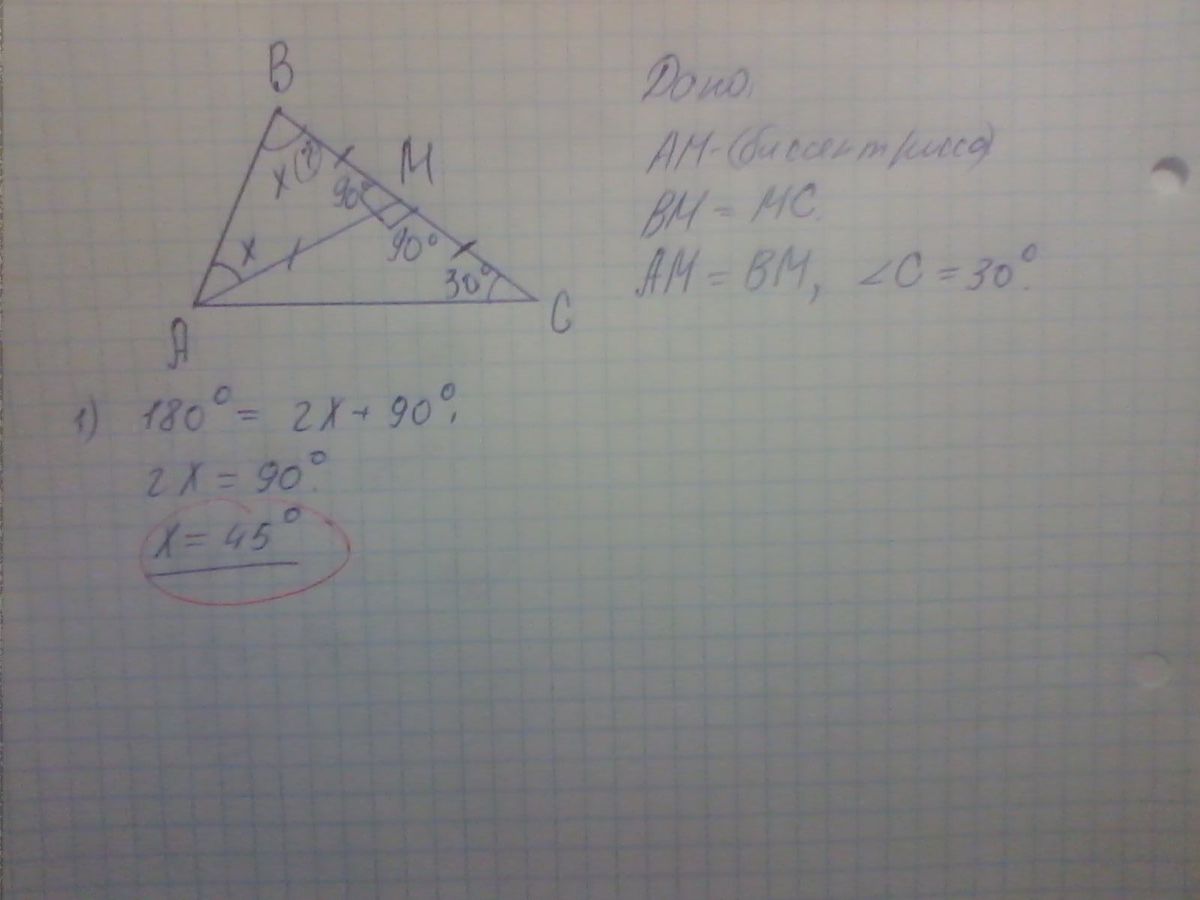 B
M
x (?)
90°
90°
x
30°
A
C
Дано.
AM-(биссектрисса)
BM = MC.
AM = BM, ∠C = 30°.
1) 180° = 2x + 90°.
2x = 90°.
x = 45°